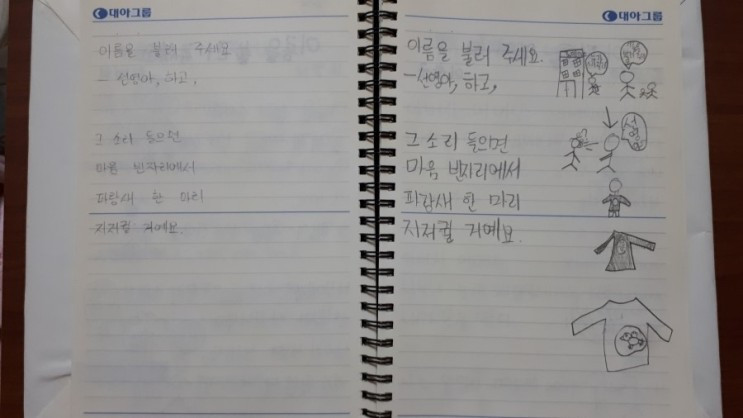 대아그룹
이름을 불러 주세요
- 선영아, 하고,
그 소리 들으면
마음 빈자리에서
파랑새 한 마리
지저귈 거예요.
대아그룹
이름을 불러 주세요.
- 선영아, 하고,
그 소리 들으면
마음 빈자리에서
파랑새 한 마리
지저귈 거예요.